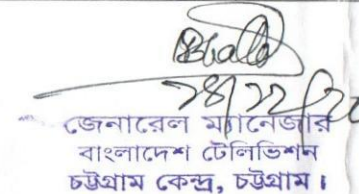 ২৪/১১/২০
জেনারেল ম্যানেজার
বাংলাদেশ টেলিভিশন
চট্টগ্রাম কেন্দ্র, চট্টগ্রাম।